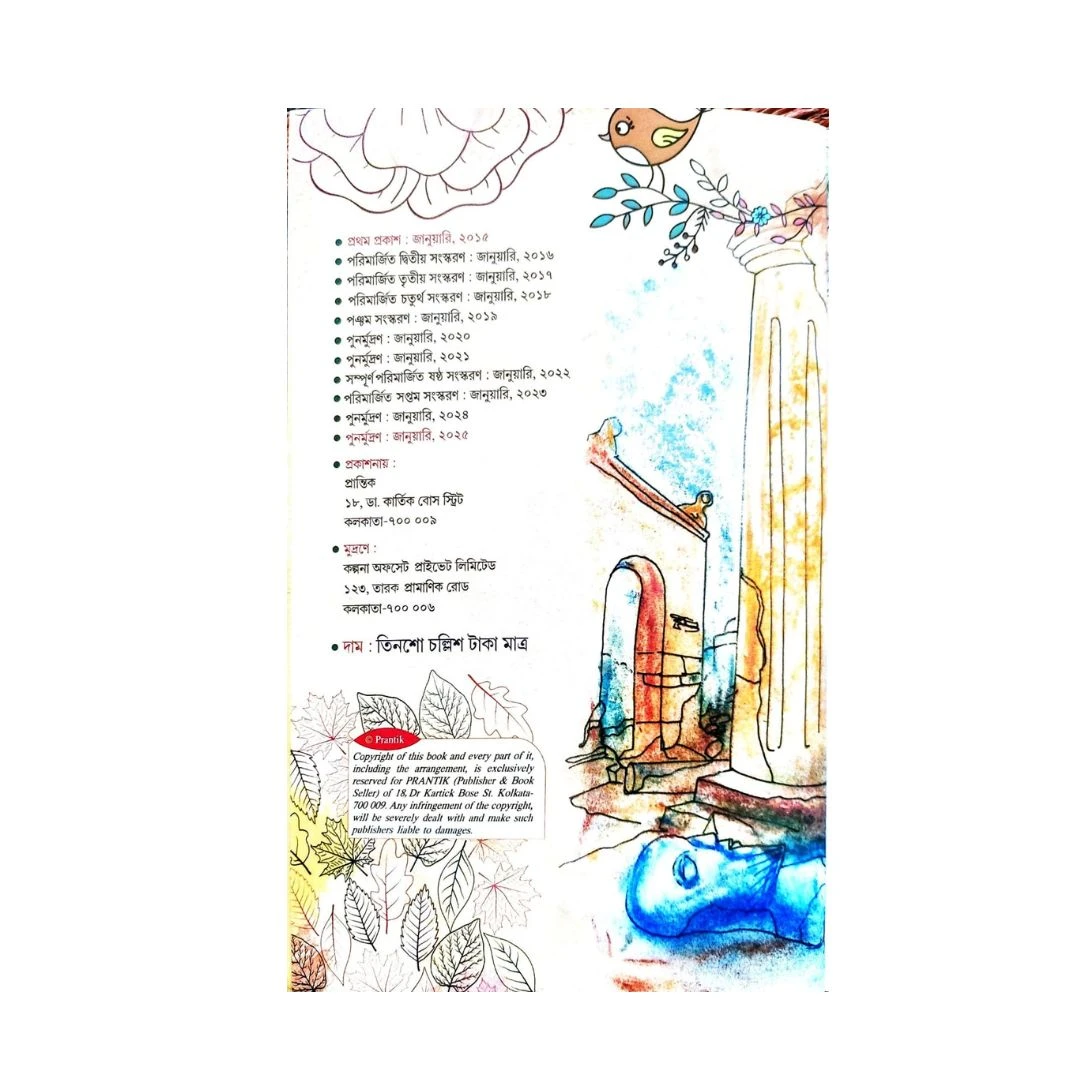 প্রথম প্রকাশ : জানুয়ারি, ২০১৫
পরিমার্জিত দ্বিতীয় সংস্করণ : জানুয়ারি, ২০১৬
পরিমার্জিত তৃতীয় সংস্করণ : জানুয়ারি, ২০১৭
পরিমার্জিত চতুর্থ সংস্করণ : জানুয়ারি, ২০১৮
পঞ্চম সংস্করণ : জানুয়ারি, ২০১৯
পুনর্মুদ্রণ : জানুয়ারি, ২০২০
পুনর্মুদ্রণ : জানুয়ারি, ২০২১
সম্পূর্ণ পরিমার্জিত ষষ্ঠ সংস্করণ : জানুয়ারি, ২০২২
পরিমার্জিত সপ্তম সংস্করণ : জানুয়ারি, ২০২৩
পুনর্মুদ্রণ : জানুয়ারি, ২০২৪
পুনর্মুদ্রণ : জানুয়ারি, ২০২৫
প্রকাশনায় :
প্রান্তিক
১৮, ডা. কার্তিক বোস স্ট্রিট
কলকাতা-৭০০ ০০৯
মুদ্রণে :
কল্পনা অফসেট প্রাইভেট লিমিটেড
১২৩, তারক প্রামাণিক রোড
কলকাতা-৭০০ ০০৬
দাম : তিনশো চল্লিশ টাকা মাত্র
© Prantik
Copyright of this book and every part of it,
including the arrangement, is exclusively
reserved for PRANTIK (Publisher & Book
Seller) of 18, Dr Kartick Bose St. Kolkata-
700 009. Any infringement of the copyright,
will be severely dealt with and make such
publishers liable to damages.